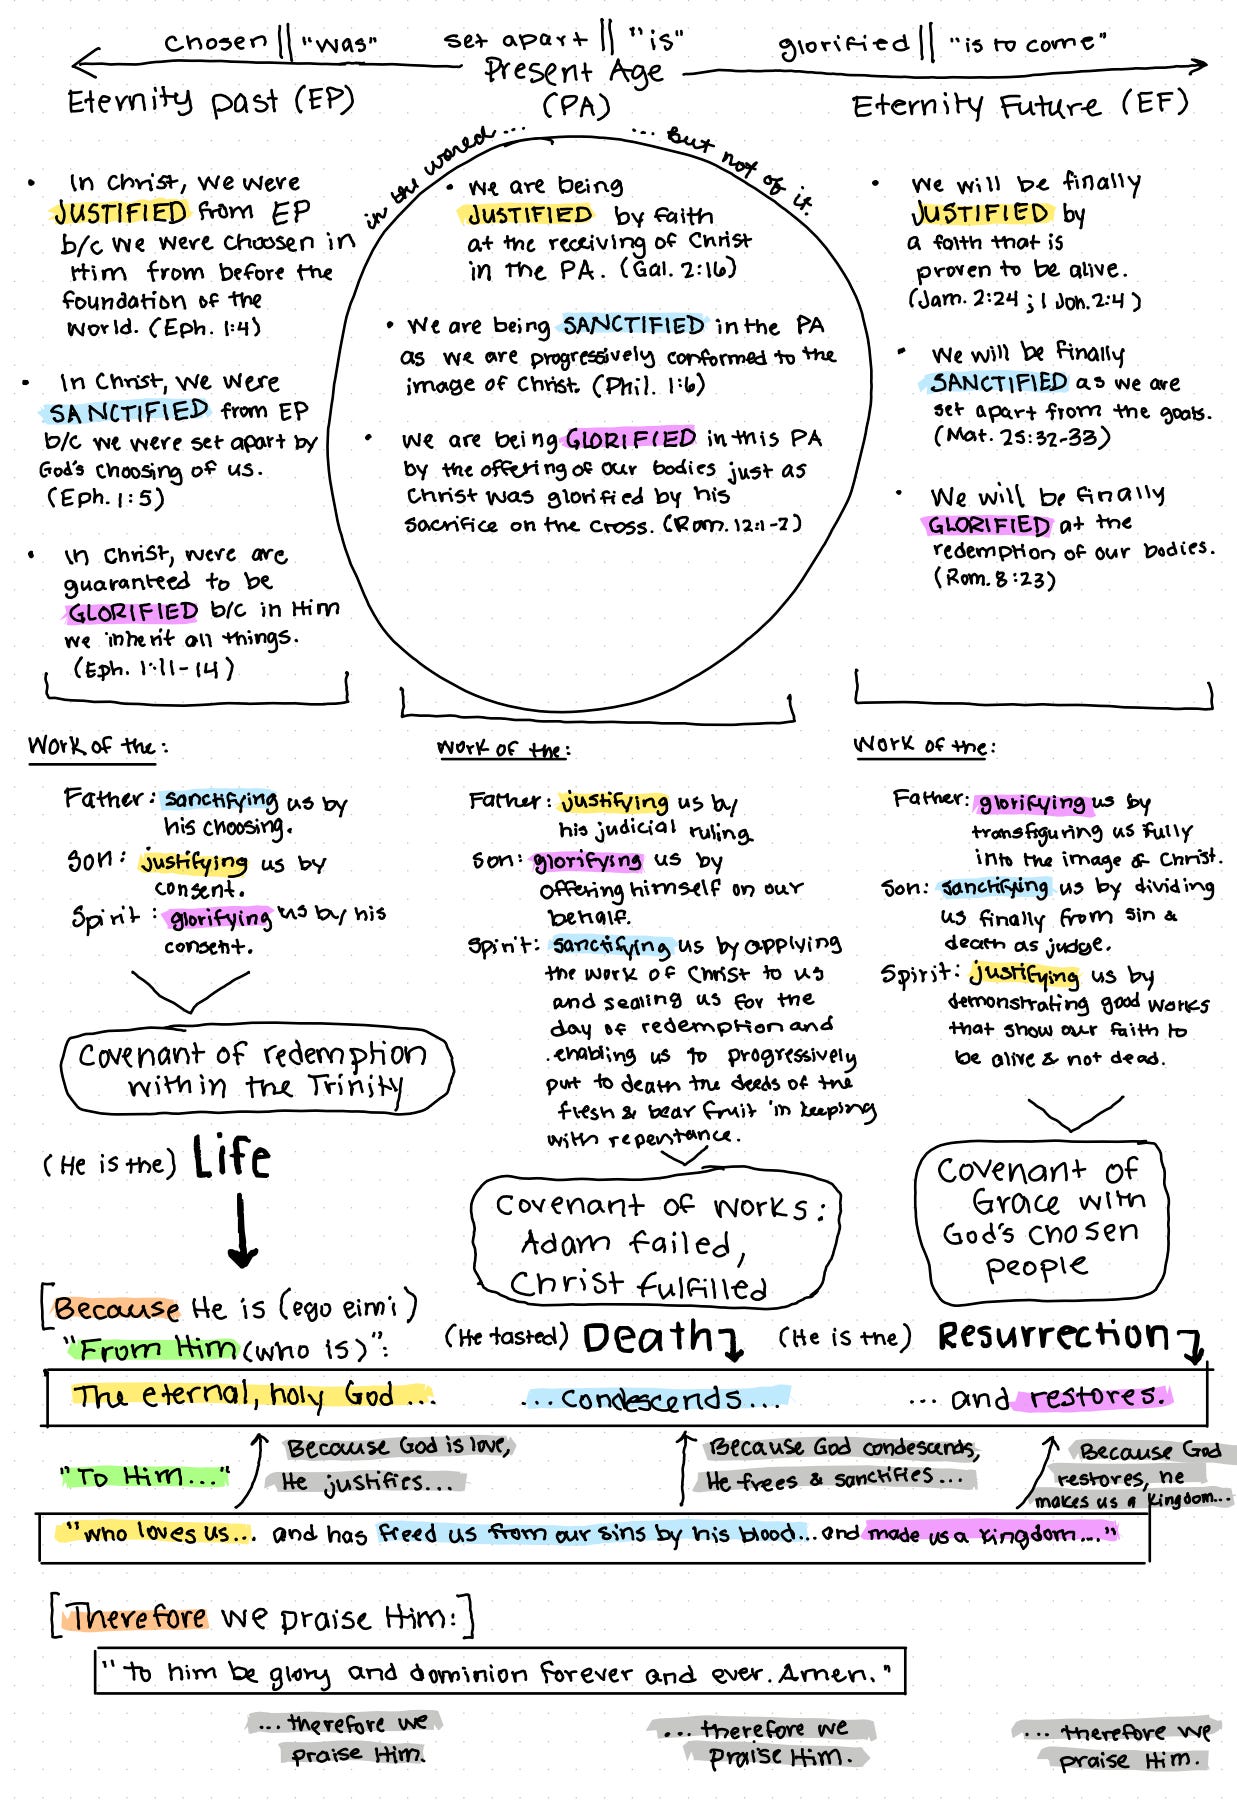 chosen || "was"
set apart || "is"
glorified || "is to come"
Eternity past (EP)
Present Age
(PA)
Eternity Future (EF)
in the world... ...But not of it.
• In Christ, we were
JUSTIFIED from EP
b/c we were choosen in
Him from before the
foundation of the
world. (Eph. 1:4)
• In Christ, we were
SANCTIFIED from EP
b/c we were set apart by
God's choosing of us.
(Eph. 1:5)
• In Christ, were are
guaranteed to be
GLORIFIED b/c in Him
we inherit all things.
(Eph. 1:11-14)
• We are being
JUSTIFIED by faith
at the receiving of Christ
in the PA. (Gal. 2:16)
• We are being SANCTIFIED in the PA
as we are progressively conformed to the
image of Christ. (Phil. 1:6)
• We are being GLORIFIED in this PA
by the offering of our bodies just as
Christ was glorified by his
sacrifice on the cross. (Rom. 12:1-2)
• We will be finally
JUSTIFIED by
a faith that is
proven to be alive.
(Jam. 2:24; 1 Joh. 2:4)
• We will be finally
SANCTIFIED as we are
set apart from the goats.
(Mat. 25:32-33)
• We will be finally
GLORIFIED at the
redemption of our bodies.
(Rom. 8:23)
Work of the:
Father: sanctifying us by
his choosing.
Son: justifying us by
consent.
Spirit: glorifying us by his
consent.
Covenant of redemption
within the Trinity
Work of the:
Father: justifying us by
his judicial ruling
Son: glorifying us by
offering himself on our
behalf.
Spirit: sanctifying us by applying
the work of Christ to us
and sealing us for the
day of redemption and
enabling us to progressively
put to death the deeds of the
flesh & bear fruit in keeping
with repentance.
Covenant of works:
Adam failed,
Christ fulfilled
Work of the:
Father: glorifying us by
transfiguring us fully
into the image of Christ.
Son: sanctifying us by dividing
us finally from sin &
death as judge.
Spirit: justifying us by
demonstrating good works
that show our faith to
be alive & not dead.
Covenant of
Grace with
God's chosen
people
(He is the) Life
[Because He is (ego eimi)
"From Him (who is)":
(He tasted) Death
(He is the) Resurrection
The eternal, holy God... ...condescends... ...and restores.
"To Him..."
Because God is love,
He justifies...
Because God condescends,
He frees & sanctifies...
Because God
restores, he
makes us a kingdom...
"who loves us... and has freed us from our sins by his blood...and made us a kingdom..."
[Therefore we praise Him:]
"to him be glory and dominion forever and ever. Amen."
...therefore we
praise Him.
...therefore we
praise Him.
...therefore we
praise Him.